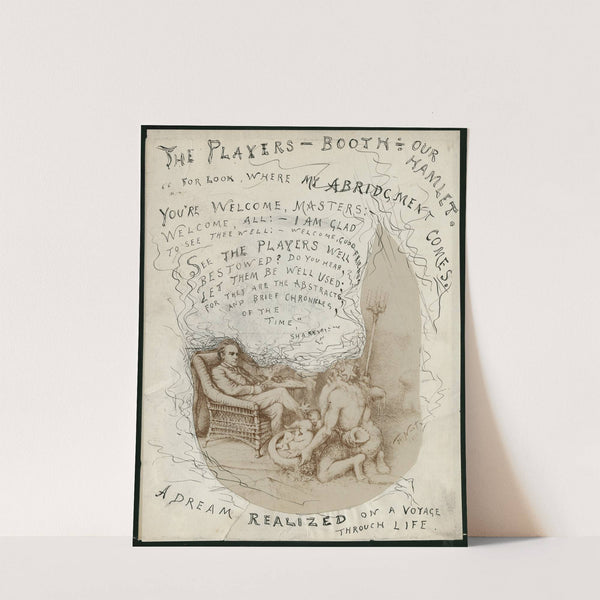 THE PLAYERS — BOOTH ÷ OUR HAMLET.
"FOR LOOK, WHERE MY ABRIDGMENT COMES.
YOU'RE WELCOME, MASTERS;
WELCOME, ALL: — I AM GLAD
TO SEE THEE WELL: — WELCOME, GOOD FRIENDS
SEE THE PLAYERS WELL
BESTOWED? DO YOU HEAR,
LET THEM BE WELL USED;
FOR THEY ARE THE ABSTRACTS,
AND BRIEF CHRONICLES,
OF THE
TIME",
A DREAM REALIZED ON A VOYAGE
THROUGH LIFE.